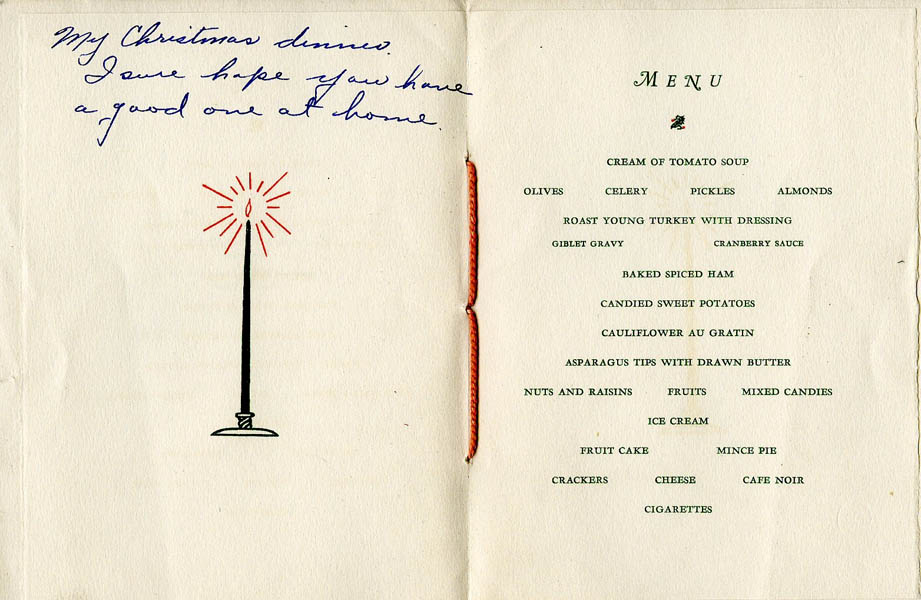 My Christmas dinner.
I sure hope you have
a good one at home.
MENU
CREAM OF TOMATO SOUP
OLIVES CELERY PICKLES ALMONDS
ROAST YOUNG TURKEY WITH DRESSING
GIBLET GRAVY CRANBERRY SAUCE
BAKED SPICED HAM
CANDIED SWEET POTATOES
CAULIFLOWER AU GRATIN
ASPARAGUS TIPS WITH DRAWN BUTTER
NUTS AND RAISINS FRUITS MIXED CANDIES
ICE CREAM
FRUIT CAKE MINCE PIE
CRACKERS CHEESE CAFE NOIR
CIGARETTES